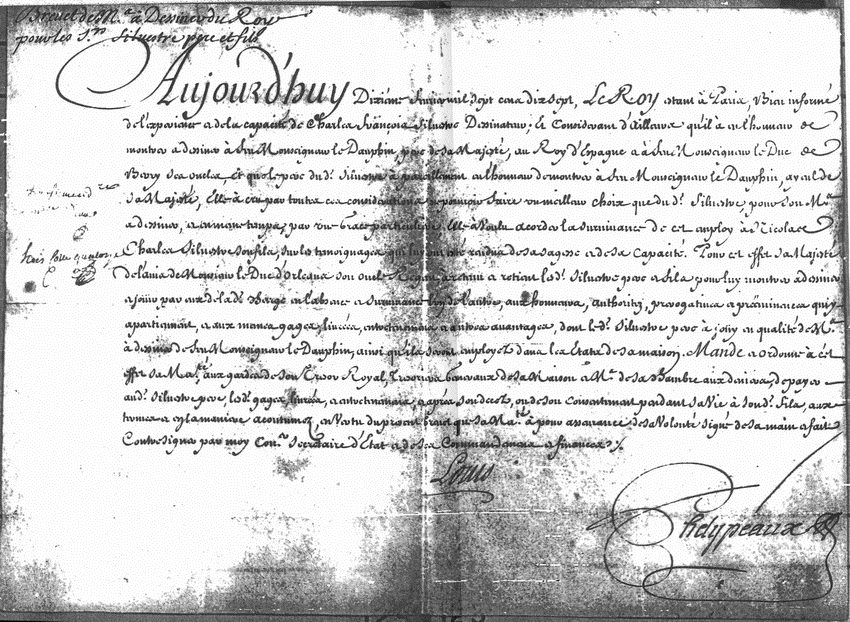 Brevet de M.e à Dessiner du Roy
pour les S.rs Silvestre pere et fils
Aujourd'huy Dixiéme mil sept cens dix sept, Le Roy estant à Paris, Bien informé
de l'experience et de la capacité de Charles François Silvestre Dessinateur; Et Considerant d'ailleurs qu'il à eu l'honneur de
montrer a dessiner à feu Monseigneur le Dauphin, pere de sa Majesté, au Roy d'Espagne et à feu Monseigneur le Duc de
Berry ses oncles, Et que le pere dud. Silvestre à pareillement eu l'honneur de montrer à feu Monseigneur le Dauphin, ayeul de
sa Majesté, Elle à crû par toutes ces considerations ne pouvoir faire un meilleur choix que dud. Silvestre, pour son M.e
a dessiner, et en mesme temps, par une grace particuliere, Elle à Voulu acorder la survivance de cet employ à Nicolas
Charles Silvestre son fils, sur les temoignages qui luy ont été rendus de sa sagesse et de sa Capacité. Pour cet effet sa Majesté
de l'avis de Monsieur le Duc d'Orleans son oncle Regent à retenu et retient led. Silvestre pere et fils pour luy montrer a dessiner
en l'absence et survivance l'un de l'autre, aux honneurs, authoritez, prerogatives et préeminences qui y
apartiennent, et aux mesmes gages, livrées, entretenemens et autres avantages, dont led. Silvestre pere à jouy en qualité de M.e
à dessiner de feu Monseigneur le Dauphin, ainsi qu'ils seront employez dans les Etats de sa maison. Mande et ordonne à cet
effet sa Ma.té aux gardes de son Tresor Royal, Tresoriers Generaux de sa Maison et M.e de sa Chambre aux deniers, de payer
aud. Silvestre pere lesd. gages, livrées, et entretenemens, et aprés son decés, ou de son consentement pendant sa Vie à sond. fils, aux
termes et en la maniere accoutumez, en Vertu du present brevet que sa Ma.té à pour assurance de sa Volonté signé de sa main et fait
Contresigner par moy Con.er Secretaire d'Etat et de ses Commandemens et finances ./.
Louis
Phelypeaux